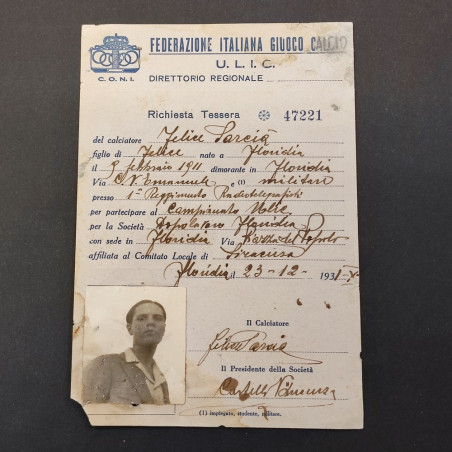 FEDERAZIONE ITALIANA GIUOCO CALCIO
U. L. I. C.
C.O.N.I.
DIRETTORIO REGIONALE
Richiesta Tessera ❊ 47221
del calciatore Felice Sarcià
figlio di Felice nato a Floridia
il 9 febbraio 1911 dimorante in Floridia
Via C. V. Emanuele e (1) militare
presso 1º Reggimento Radiotelegrafisti
per partecipare al Campionato Ulic
per la Società Dopolavoro Floridia
con sede in Floridia Via Piazza del Popolo
affiliata al Comitato Locale di Siracusa
Floridia, il 23-12-1931-X
Il Calciatore
Felice Sarcià
Il Presidente della Società
(1) impiegato, studente, militare.